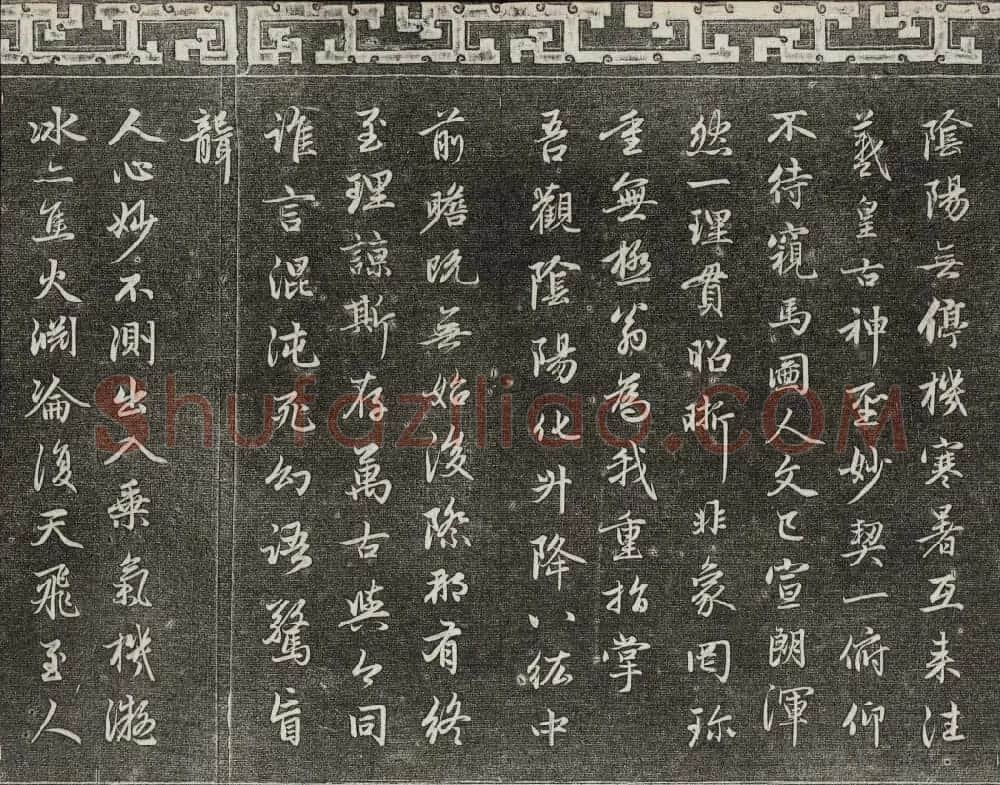 陰陽无停機寒暑互来往
羲皇古神聖妙契一俯仰
不待窺馬圖人文已宣朗渾
然一理貫昭晰非象罔珍
重無極翁為我重指掌
吾觀陰陽化升降八紘中
前瞻既無始後際那有終
至理諒斯存萬古與今同
誰言混沌死幻語驚盲
聾
人心妙不測出入乘氣機凝
冰亦焦火淵淪復天飛至人
Shufaziliao.COM